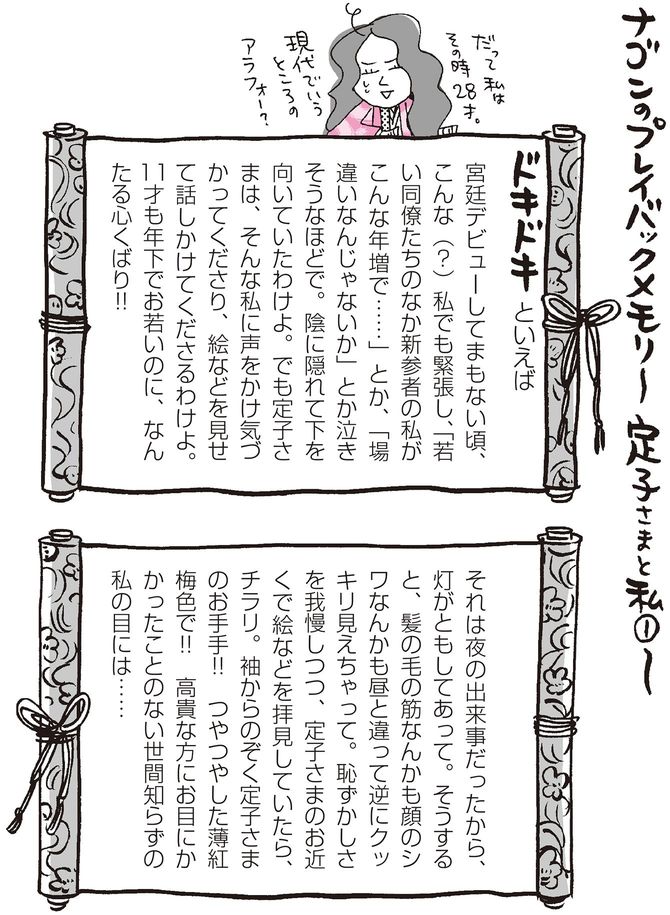 ナゴンのプレイバックメモリー 定子さまと私①〜
だって私は
その時28才。
現代でいう
ところの
アラフォー？
ドキドキといえば
宮廷デビューしてまもない頃、
こんな（？）私でも緊張し、「若
い同僚たちのなか新参者の私が
こんな年増で……」とか、「場
違いなんじゃないか」とか泣き
そうなほどで。陰に隠れて下を
向いていたわけよ。でも定子さ
まは、そんな私に声をかけ気づ
かってくださり、絵などを見せ
て話しかけてくださるわけよ。
11才も年下でお若いのに、なん
たる心くばり!!
それは夜の出来事だったから、
灯がともしてあって。そうする
と、髪の毛の筋なんかも顔のシ
ワなんかも昼と違って逆にクッ
キリ見えちゃって。恥ずかしさ
を我慢しつつ、定子さまのお近
くで絵などを拝見していたら、
チラリ。袖からのぞく定子さま
のお手手!!　つやつやした薄紅
梅色で!!　高貴な方にお目にか
かったことのない世間知らずの
私の目には……